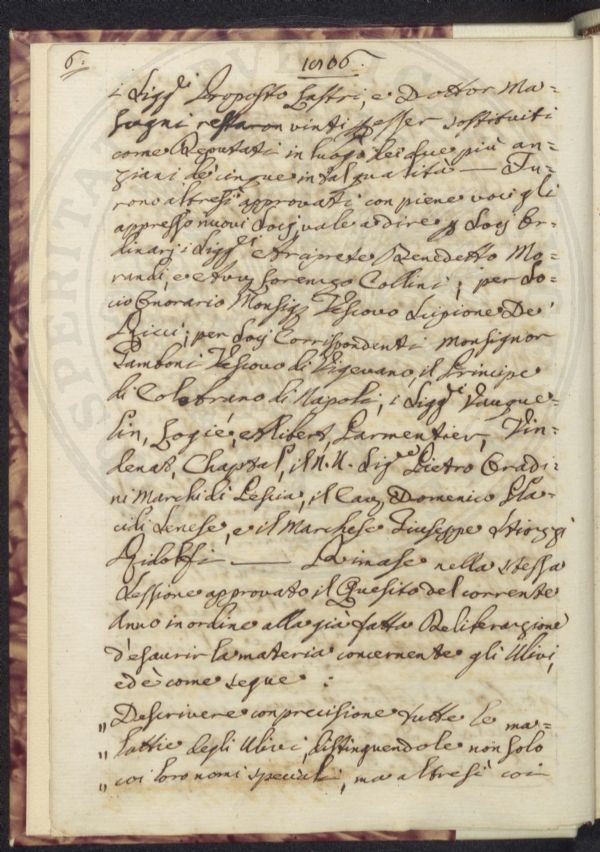 6: 1806.
i Sigg.ri Proposto Lastri, e Dottor Ma=
gagni restaron vinti p esser sostituiti
come Deputati in luogo dei due più an=
ziani de' cinque in tal qualità — Fu=
rono altresì approvati con piene voci gli
appresso nuovi Socj, vale a dire p Socj Or=
dinarj i Sigg.ri Arciprete Benedetto Mo=
randi, e Avv. Lorenzo Collini; per So=
cio Onorario Monsig. Vescovo Scipione De'
Ricci; per Socj Corrispondenti Monsignor
Gamboni Vescovo di Vigevano, il Principe
di Colobrano di Napoli, i Sigg.ri Vauque=
lin, Alibert, Parmentier,
Chaptal, il N. N. Sig.re Pietro
ni Marchi di Pescia, il Cav. Domenico Pla=
cidi Senese, e il Marchese Giuseppe
Ridolfi — Rimase nella stessa
Sessione approvato il Quesito del corrente
Anno in ordine alla già fatta Deliberazione
d'esaurir la materia concernente gli Ulivi,
ed è come segue:
„ Descrivere con precisione tutte le ma=
„ lattie degli Ulivi, distinguendole non solo
„ coi loro nomi speciali, ma altresì coi